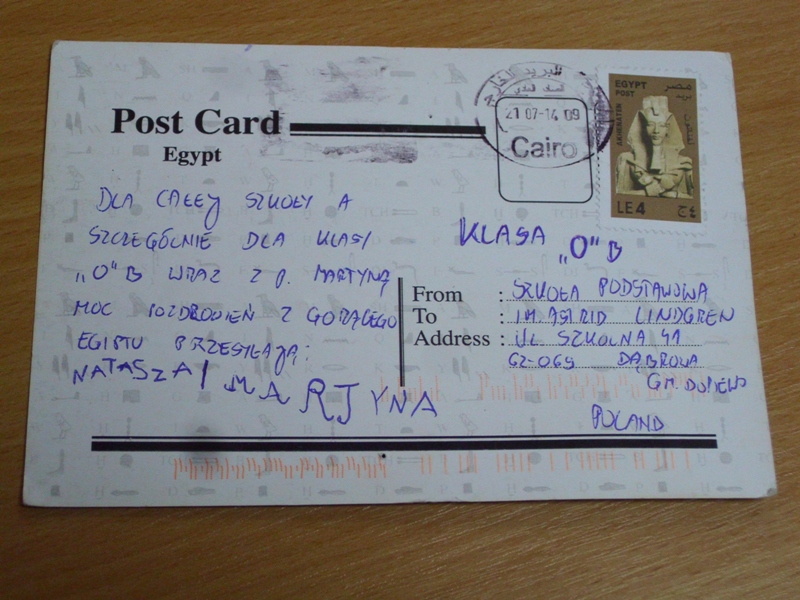 Post Card
Egypt
البريد
21 07-14 09
Cairo
EGYPT
POST
مصر
بريد
AKHENATEN
اخناتون
LE4
٤ج
DLA CAŁEJ SZKOŁY A
SZCZEGÓLNIE DLA KLASY
„O"B WRAZ Z P. MARTYNĄ
MOC POZDROWIEŃ Z GORĄCEGO
EGIPTU PRZESYŁAJĄ:
NATASZA I MARTYNA
KLASA
„O"B
From : SZKOŁA PODSTAWOWA
To : IM ASTRID LINDGREN
Address : UL. SZKOLNA 41
62-069 DĄBROWA
GM. DOPIEWO
POLAND